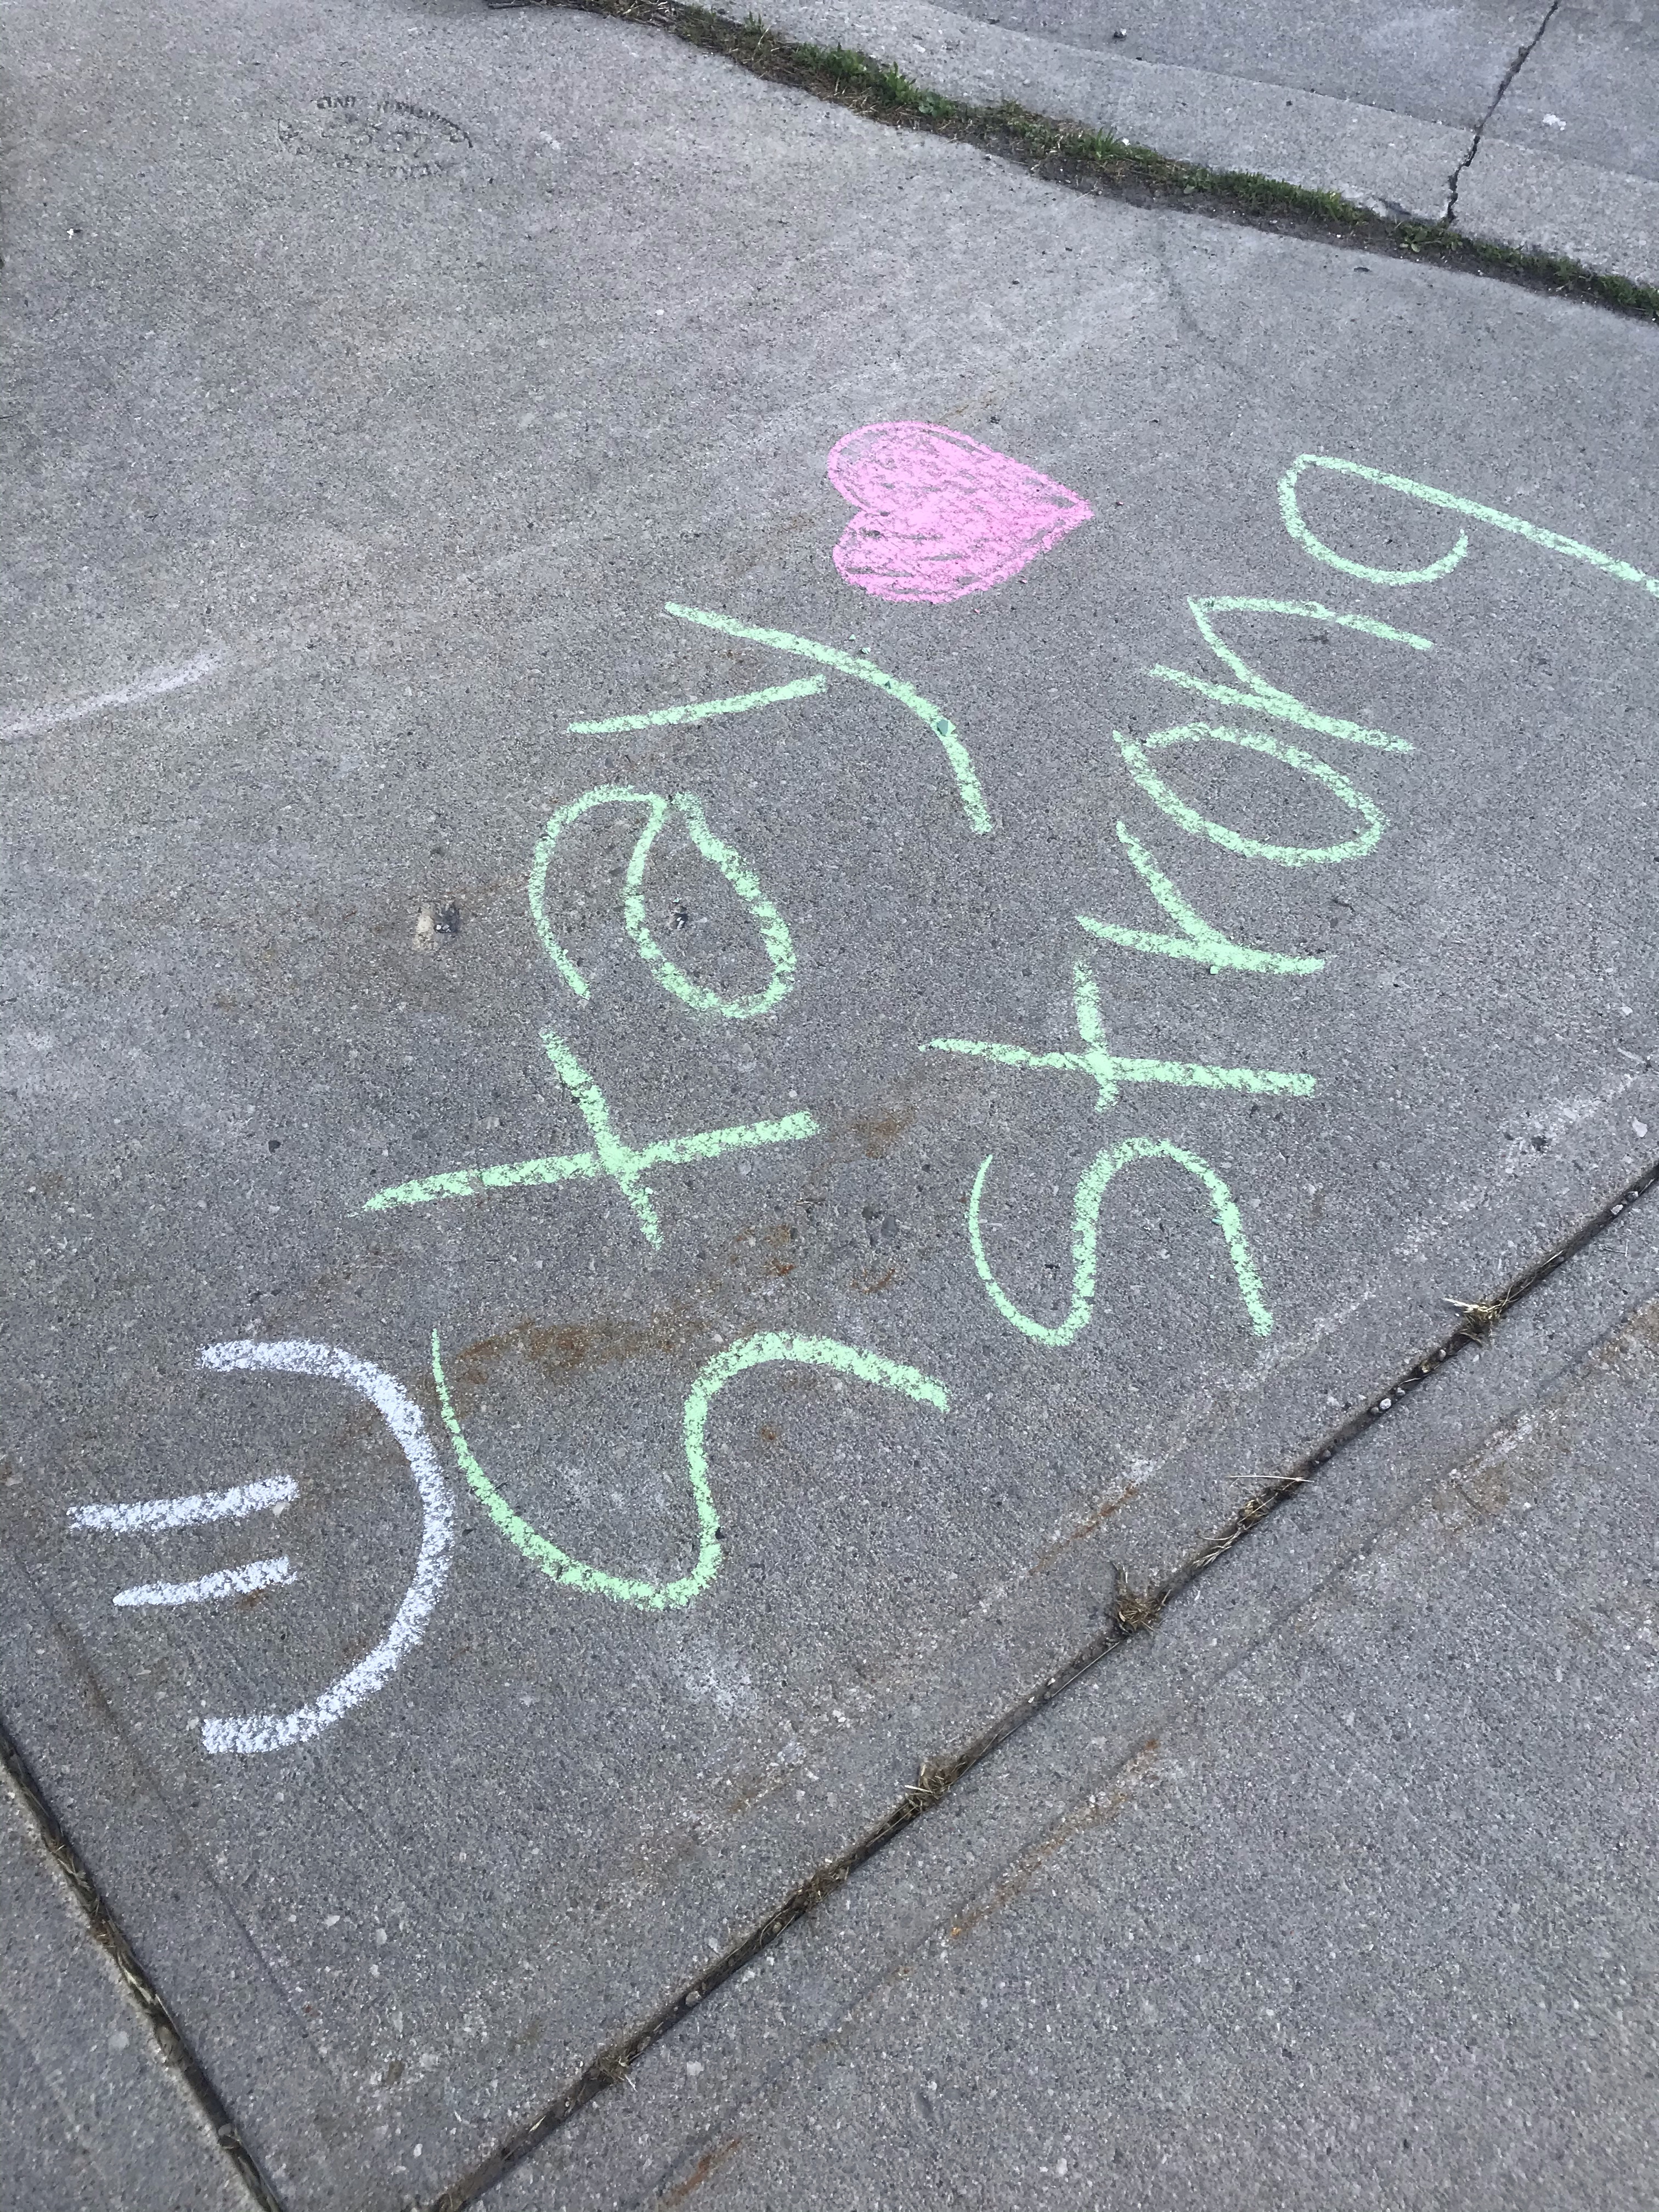 Stay
strong